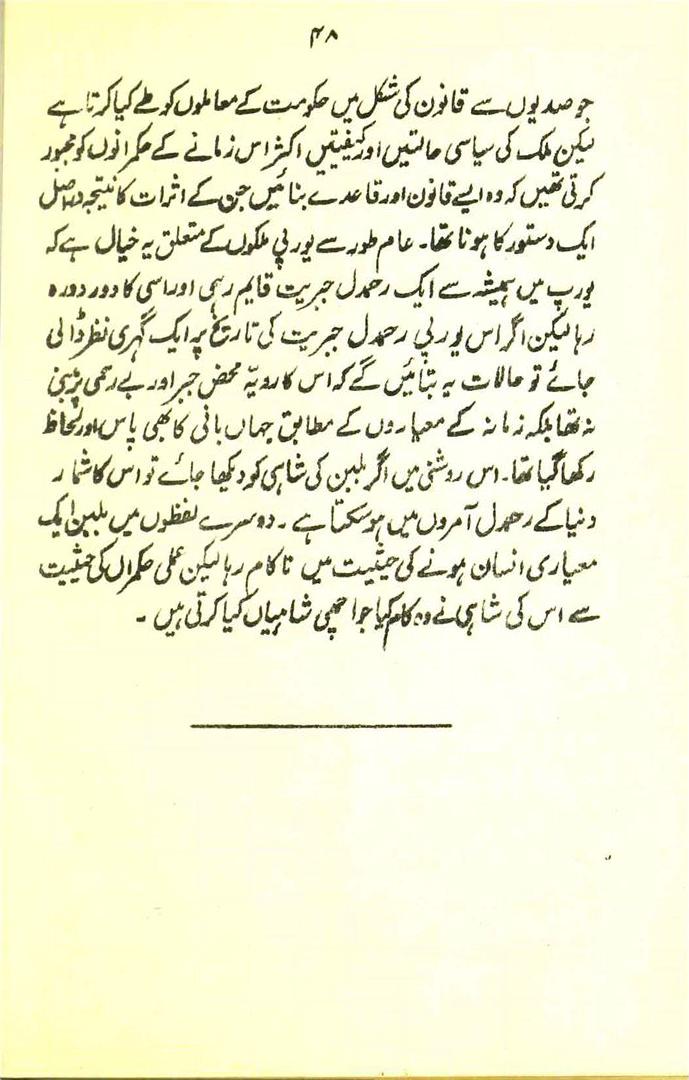 ۴۸
جو صدیوں سے قانون کی شکل میں حکومت کے معاملوں کو طے کیا کرتا ہے
لیکن ملک کی سیاسی حالتیں اور کیفیتیں اکثر اس زمانے کے حکمرانوں کو مجبور
کرتی تھیں کہ وہ ایسے قانون اور قاعدے بنائیں جن کے اثرات کا نتیجہ دراصل
ایک دستور کا ہونا تھا۔ عام طور سے یورپی ملکوں کے متعلق یہ خیال ہے کہ
یورپ میں ہمیشہ سے ایک رحمدل جبریت قایم رہی اور اسی کا دور دورہ
رہا لیکن اگر اس یورپی رحمدل جبریت کی تاریخ پر ایک گہری نظر ڈالی
جائے تو حالات یہ بتائیں گے کہ اس کا رویّہ محض جبر اور بے رحمی پر مبنی
نہ تھا بلکہ زمانہ کے معیاروں کے مطابق جہاں بانی کا بھی پاس اور لحاظ
رکھا گیا تھا۔ اس روشنی میں اگر بلبن کی شاہی کو دیکھا جائے تو اس کا شمار
دنیا کے رحمدل آمروں میں ہو سکتا ہے ۔ دوسرے لفظوں میں بلبن ایک
معیاری انسان ہونے کی حیثیت میں ناکام رہا لیکن عملی حکمراں کی حیثیت
سے اس کی شاہی نے وہ کام کیا جو اچھی شاہیاں کیا کرتی ہیں ۔